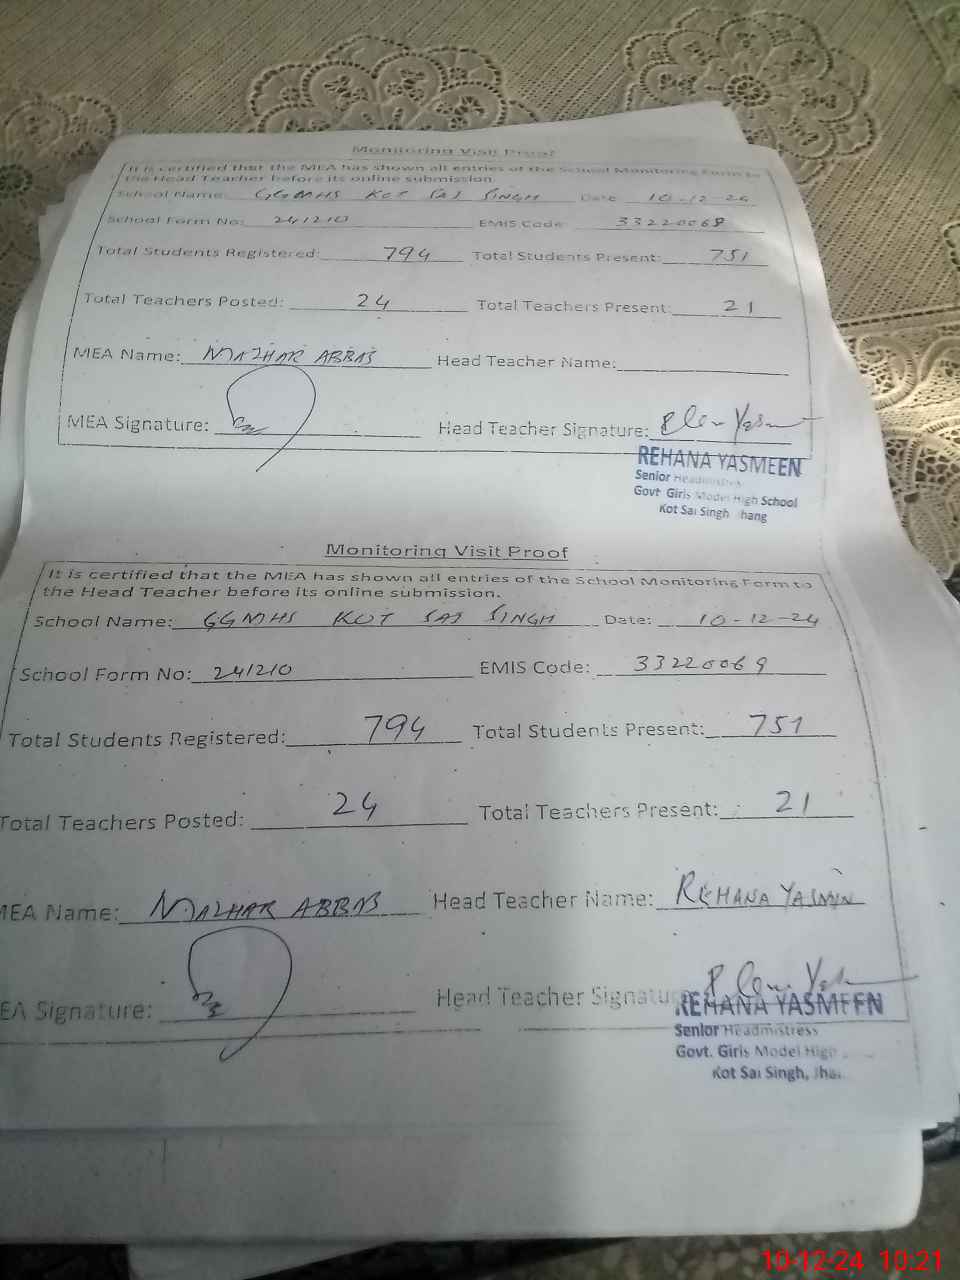 Monitoring Visit Proof
It is certified that the MEA has shown all entries of the School Monitoring Form to
the Head Teacher before its online submission.
School Name: GGMHS KOT SAI SINGH Date 10-12-24
School Form No: 241210 EMIS Code: 33220068
Total Students Registered: 794 Total Students Present: 751
Total Teachers Posted: 24 Total Teachers Present: 21
MEA Name: MAZHAR ABBAS Head Teacher Name:
MEA Signature: Head Teacher Signature:
REHANA YASMEEN
Senior Headmistress
Govt Girls Model High School
Kot Sai Singh Jhang
Monitoring Visit Proof
It is certified that the MEA has shown all entries of the School Monitoring Form to
the Head Teacher before its online submission.
School Name: GGMHS KOT SAI SINGH Date: 10-12-24
School Form No: 241210 EMIS Code: 33220069
Total Students Registered: 794 Total Students Present: 751
Total Teachers Posted: 24 Total Teachers Present: 21
MEA Name: MAZHAR ABBAS Head Teacher Name: REHANA YASMIN
EA Signature: Head Teacher Signatur
REHANA YASMEEN
Senior Headmistress
Govt. Girls Model High
Kot Sai Singh, Jha
10-12-24 10:21